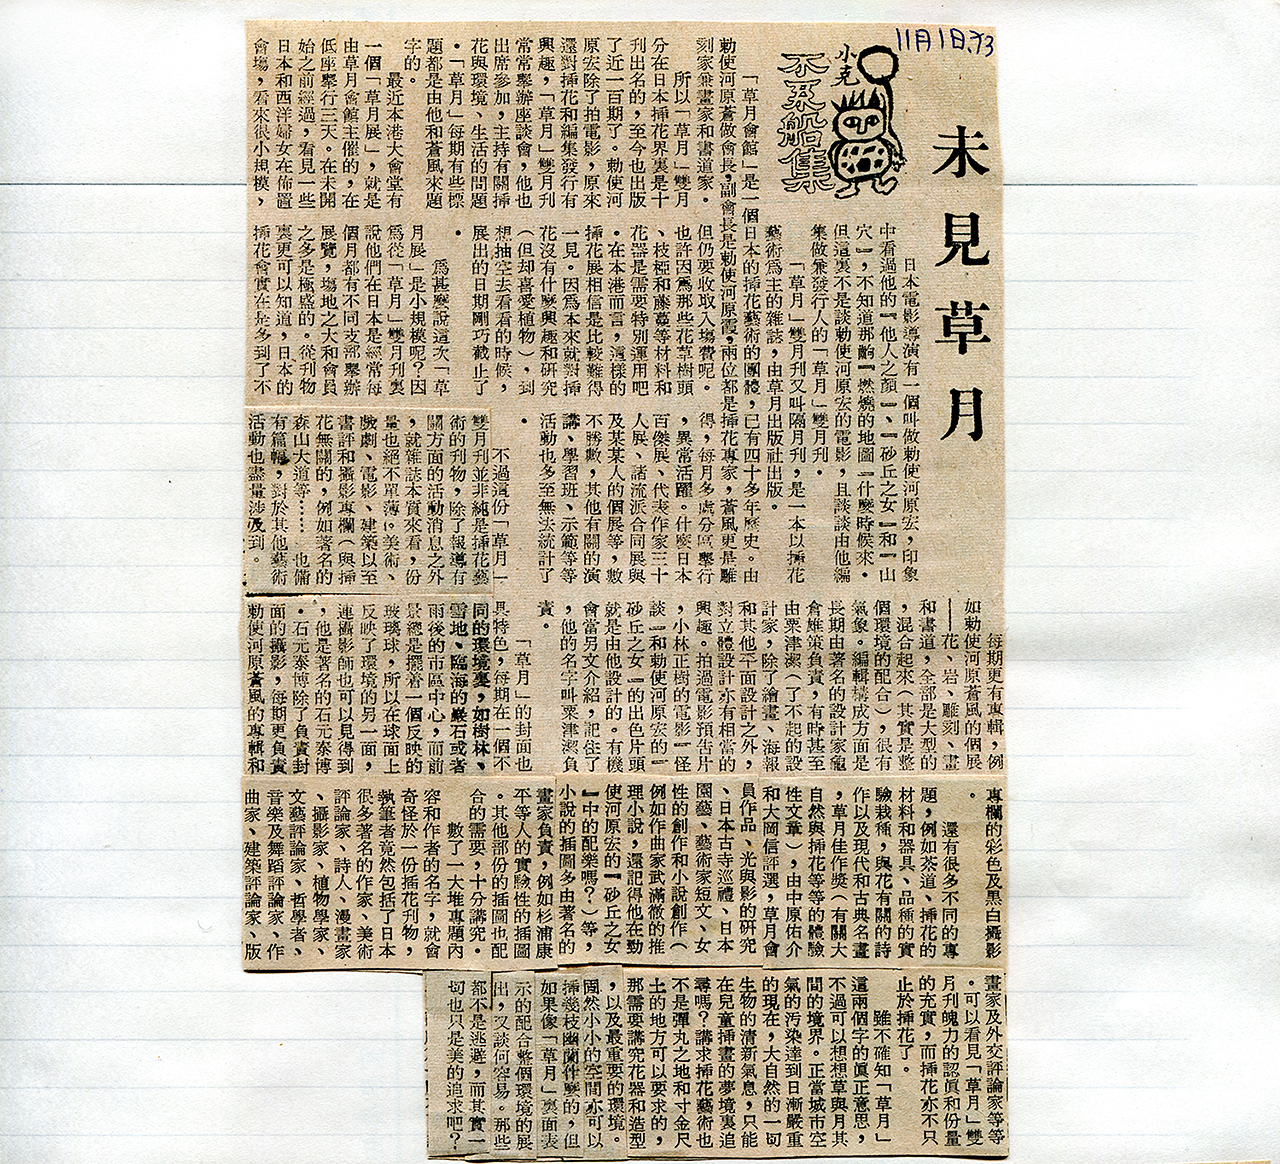 11月1日.73
未見草月
小克
不系船集
日本電影導演有一個叫做勅使河原宏,印象
中看過他的『他人之顏』、『砂丘之女』和『山
穴』,不知道那齣『燃燒的地圖』什麼時候來。
但這裏不是談勅使河原宏的電影,且談談由他編
集做兼發行人的「草月」雙月刊。
「草月」雙月刊又叫隔月刊,是一本以揷花
藝術爲主的雜誌,由草月出版社出版。
「草月會館」是一個日本的揷花藝術的團體,已有四十多年歷史。由
勅使河原蒼做會長,副會長是勅使河原霞,兩位都是揷花專家,蒼風更是雕
刻家兼畫家和書道家。
所以「草月」雙月
分在日本揷花界裏是十
刊出名的,至今也出版
了近一百期了。勅使河
原宏除了拍電影,原來
還對揷花和編集發行有
興趣,「草月」雙月刊
常常舉辦座談會,他也
出席參加,主持有關揷
花與環境、生活的問題
。「草月」每期有些標
題都是由他和蒼風來題
字的。
最近本港大會堂有
一個「草月展」,就是
由草月會館主催的,在
低座舉行三天。在未開
始之前經過,看見一些
日本和西洋婦女在佈置
會場,看來很小規模,
但仍要收取入場費呢。
也許因爲那些花草樹頭
、枝椏和藤蔓等材料和
花器是需要特別運用吧
。在本港而言,這樣的
揷花展相信是比較難得
一見。因爲本來就對揷
花沒有什麼興趣和研究
(但却喜愛植物),到
想抽空去看看的時候,
展出的日期剛巧截止了
。
爲甚麼說這次「草
月展」是小規模呢?因
爲從「草月」雙月刊裏
說他們在日本是經常每
個月都有不同支部舉辦
展覽,場地之大和會員
之多是極盛的。從刊物
裏更可以知道,日本的
揷花會實在是多到了不
得,每月多處分區舉行
,異常活躍。什麼日本
百傑展、代表作家三十
人展、諸流派合同展與
及某某人的個展等,數
不勝數,其他有關的演
講、學習班、示範等等
活動也多至無法統計了
。
不過這份「草月」
雙月刊並非純是揷花藝
術的刊物,除了報導有
關方面的活動消息之外
,就雜誌本質來看,份
量也絕不單薄。美術、
戲劇、電影、建築以至
書評和攝影專欄(與揷
花無關的,例如著名的
森山大道等……也備
有篇幅,對於其他藝術
活動也盡量涉及到。
每期更有專輯,例
如勅使河原蒼風的個展
——花、岩、雕刻、畫
和書道,全部是大型的
,混合起來(其實是整
個環境的配合),很有
氣象。編輯構成方面是
長期由著名的設計家龜
倉雄策負責,有時甚至
由粟津潔(了不起的設
計家,除了繪畫、海報
和其他平面設計之外,
對立體設計亦有相當的
興趣。拍過電影預告片
,小林正樹的電影『怪
談』和勅使河原宏的『
砂丘之女』的出色片頭
就是由他設計的。有機
會當另文介紹,記住了
,他的名字叫粟津潔負
責。
「草月」的封面也
具特色,每期在一個不
同的環境裏,如樹林、
雪地、臨海的巖石或者
雨後的市區中心,而前
景總是擺着一個反映的
玻璃球,所以在球面上
反映了環境的另一面,
連攝影師也可以見得到
,他是著名的石元泰博
。石元泰博除了負責封
面的攝影,每期更負責
勅使河原蒼風的專輯和
專欄的彩色及黑白攝影
。
還有很多不同的專
題,例如茶道、揷花的
材料和器具、品種的實
驗栽種,與花有關的詩
作以及現代和古典名畫
,草月佳作獎(有關大
自然與揷花等等的體驗
性文章),由中原佑介
和大岡信評選,草月會
員作品、光與影的研究
、日本古寺巡禮、日本
園藝、藝術家短文、女
性的創作和小說創作(
例如作曲家武滿徹的推
理小說,還記得他在勅
使河原宏的『砂丘之女
』中的配樂嗎?)等,
小說的揷圖多由著名的
畫家負責,例如杉浦康
平等人的實驗性的揷圖
。其他部份的揷圖也配
合的需要,十分講究。
數了一大堆專題內
容和作者的名字,就會
奇怪於一份揷花刊物,
執筆者竟然包括了日本
很多著名的作家、美術
評論家、詩人、漫畫家
、攝影家、植物學家、
文藝評論家、哲學者、
音樂及舞蹈評論家、作
曲家、建築評論家、版
畫家及外交評論家等等
。可以看見「草月」雙
月刊魄力的認眞和份量
的充實,而揷花亦不只
止於揷花了。
雖不確知「草月」
這兩個字的眞正意思,
不過可以想想草與月其
間的境界。正當城市空
氣的污染達到日漸嚴重
的現在,大自然的一切
生物的清新氣息,只能
在兒童揷畫的夢境裏追
尋嗎?講求揷花藝術也
不是彈丸之地和寸金尺
土的地方可以要求的,
那需要講究花器和造型
,以及最重要的環境。
固然小小的空間亦可以
揷幾枝幽蘭什麼的,但
如果像「草月」裏面表
示的配合整個環境的展
出,又談何容易。那些
都不是逃避,而其實一
切也只是美的追求吧?